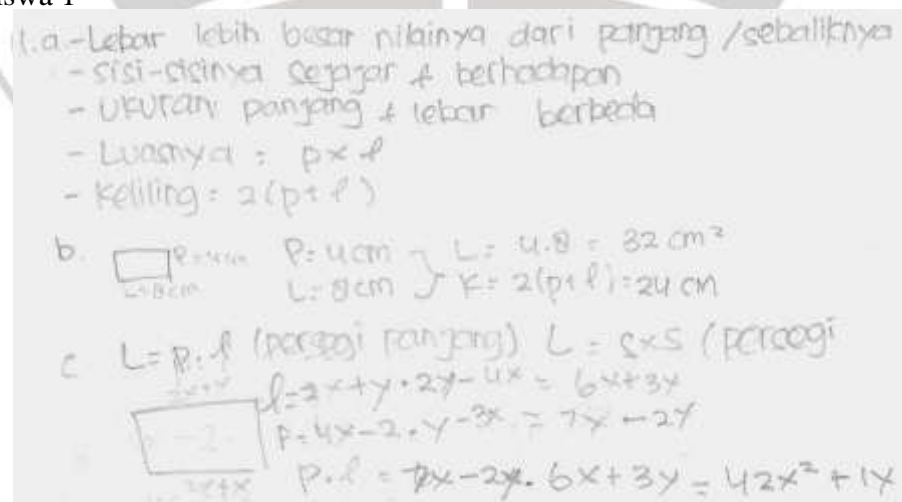 1.a.-Lebar lebih besar nilainya dari panjang /sebaliknya
- sisi-sisinya sejajar & berhadapan
- Ukuran panjang & lebar berbeda
- Luasnya = p×l
- Keliling = 2(p+l)
b. P=4cm P=4cm L= 4.8 = 32 cm²
L=8cm L=8cm K= 2(p+l)=24 cm
c L=p.l (persegi panjang) L = s×s (persegi
l=2x+y+2y-4x = 6x+3y
P=4x-2.y-3x = 7x-2y
P.l = 7x-2y. 6x+3y = 42x²+1x